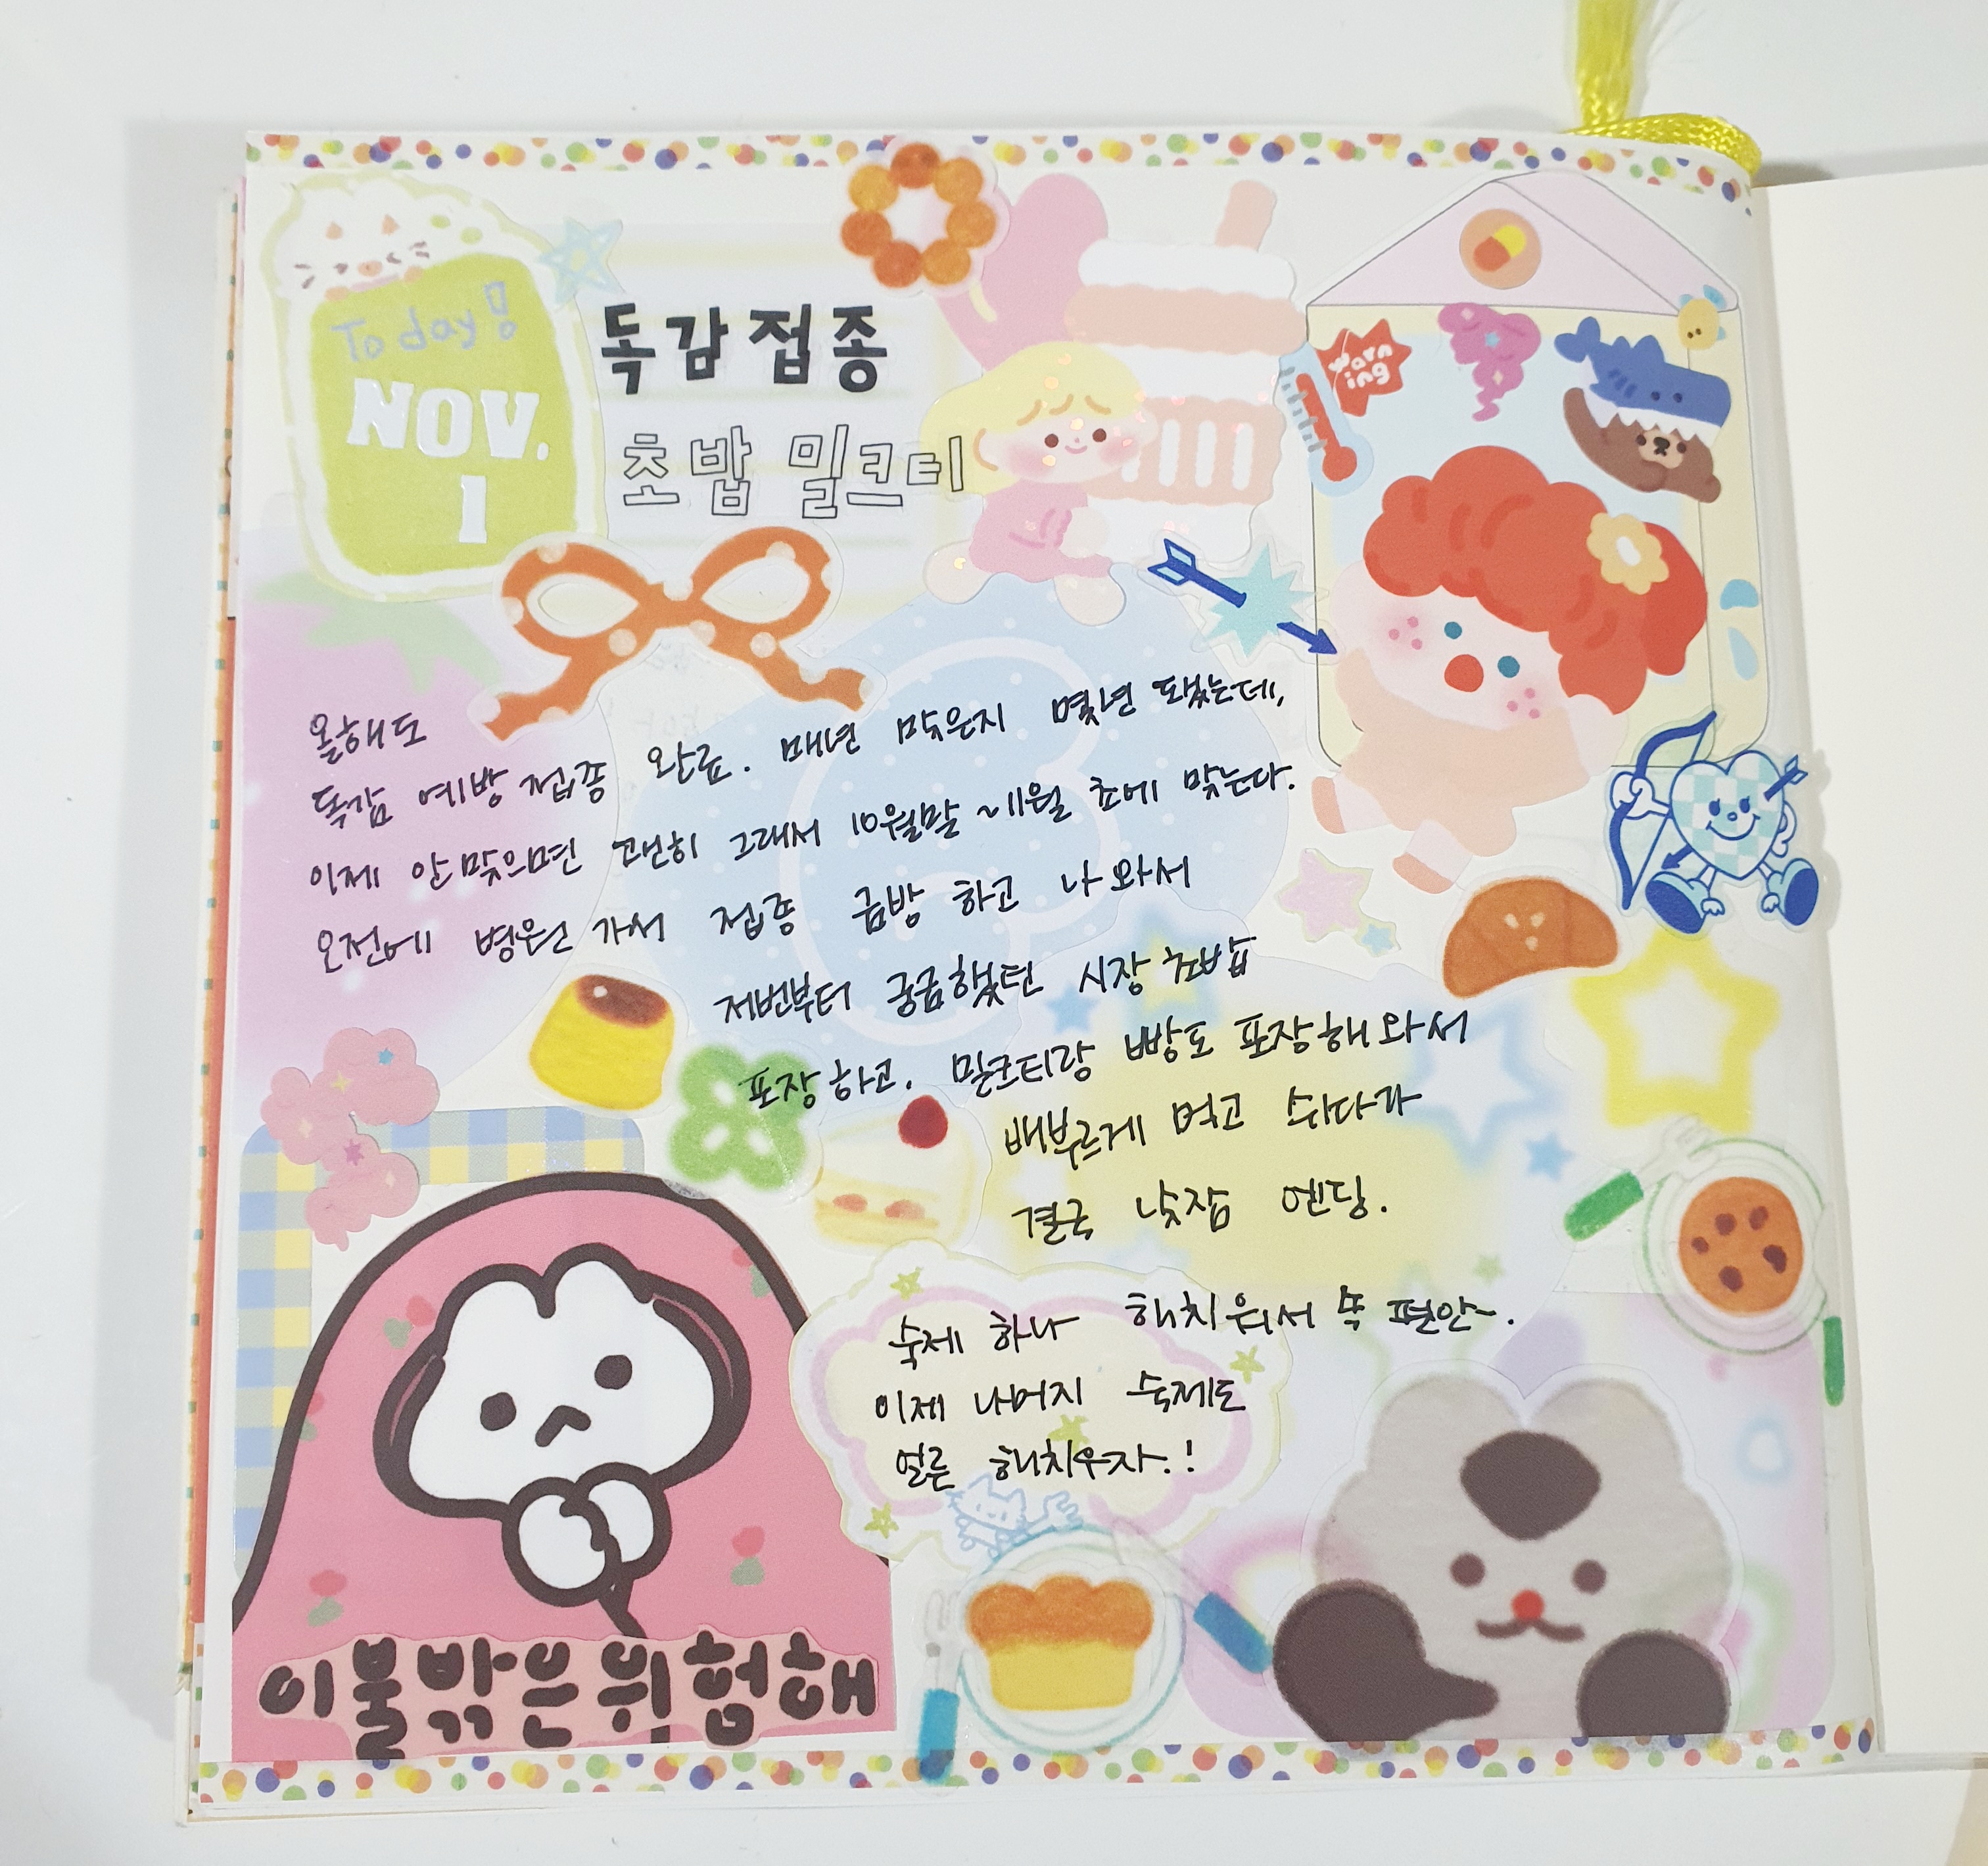 Today!
NOV.
1
독감접종
초밥 밀크티
warn
ing
올해도
독감 예방접종 완료. 매년 맞은지 몇년 됐는데,
이제 안맞으면 괜히 그래서 10월말~11월 초에 맞는다.
오전에 병원가서 접종 금방 하고 나와서
저번부터 궁금했던 시장초밥
포장하고. 밀크티랑 빵도 포장해와서
배부르게 먹고 쉬다가
결국 낮잠 엔딩.
숙제 하나 해치워서 쏙 편안~.
이제 나머지 숙제도
얼른 해치우자.!
이불밖은위험해